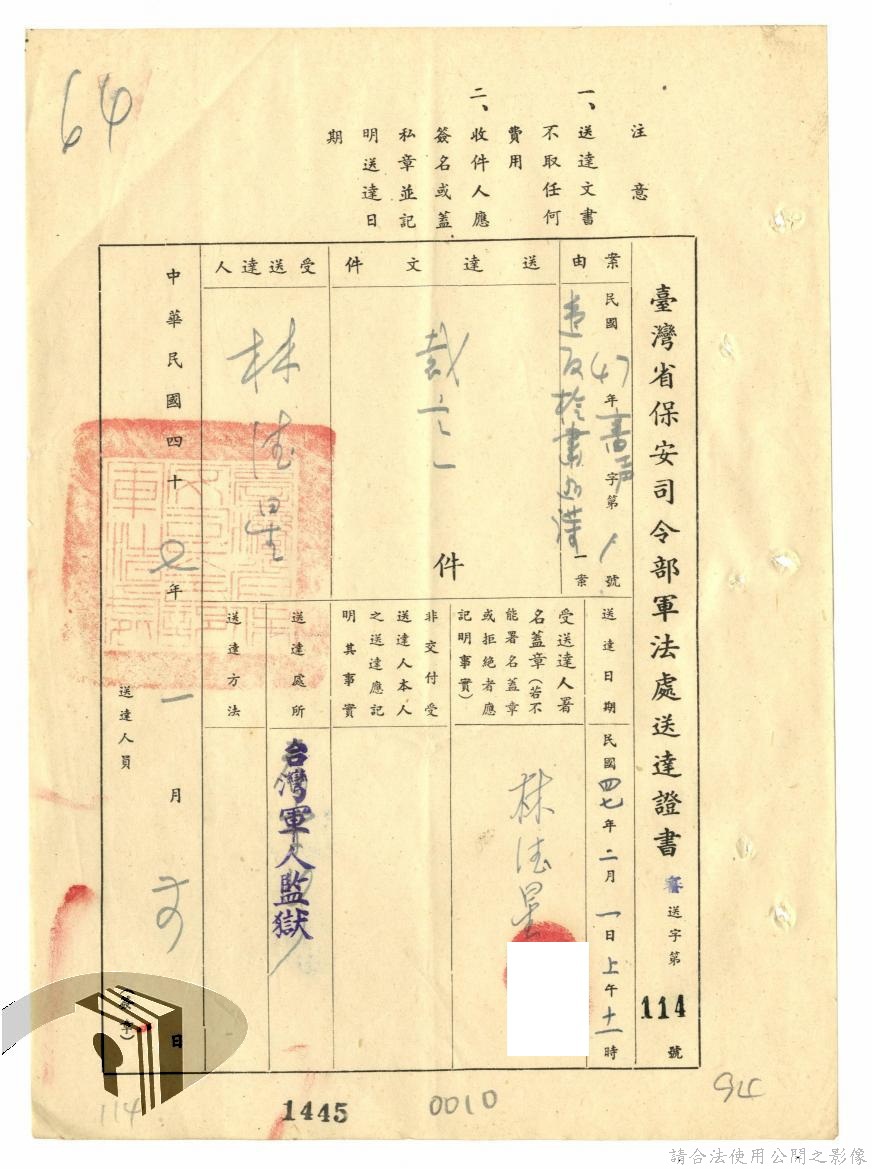 64
注意
一、送達文書
不取任何
費用
二、收件人應
簽名或蓋
私章並記
明送達日
期
臺灣省保安司令部軍法處送達證書
審送字第114號
案由
民國47年審声字第1號
一案
送達文件
裁定一件
受送達人
林德星
送達日期
民國四七年二月一日上午十一時
受送達人署
名蓋章(若不
能署名蓋章
或拒絕者應
記明事實)
林德星
非交付受
送達人本人
之送達應記
明其事實
送達處所
台灣軍人監獄
送達方法
中華民國四十七年一月 日
送達人員
(簽章)
114
1445
0010
94
請合法使用公開之影像